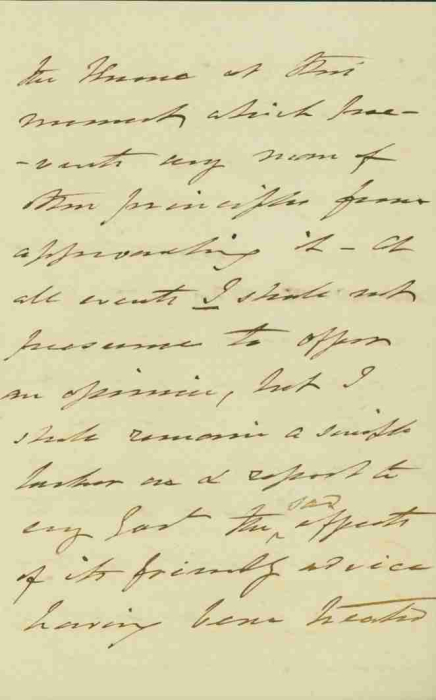 the Throne at this
moment which pre-
-vents any man of
other principles from
approaching it - At
all events I shall not
presume to offer
an opinion, but I
shall remain a simple
looker on & report to
my Govt the sad effects
of its friendly advice
having been treated